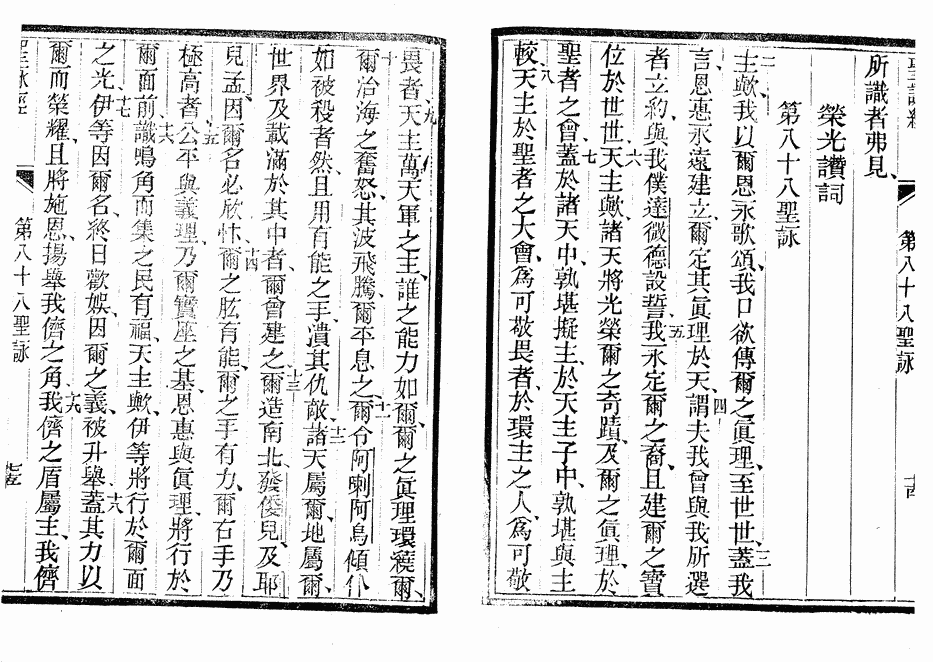 聖詠經
第八十八聖詠
十四
所識者弗見、
榮光讚詞
第八十八聖詠
二主歟、我以爾恩永歌頌、我口欲傳爾之眞理、至世世、三蓋我
言、恩惠永遠建立、爾定其眞理於天、四謂夫我曾與我所選
者立約、與我僕達微德設誓、五我永定爾之裔、且建爾之寶
位於世世、六天主歟、諸天將光榮爾之奇蹟、及爾之眞理、於
聖者之會、七蓋於諸天中、孰堪擬主、於天主子中、孰堪與主
較、八天主於聖者之大會、爲可敬畏者、於環主之人、爲可敬
畏者、九天主萬天軍之王、誰之能力如爾、爾之眞理環繞爾、
十爾治海之奮怒、其波飛騰、爾平息之、十一爾令阿喇阿烏傾仆
如被殺者然、且用有能之手、潰其仇敵、十二諸天屬爾、地屬爾、
世界及載滿於其中者、爾曾建之、十三爾造南北、發倭兒、及耶
兒孟、因爾名必欣忭、十四爾之肱有能、爾之手有力、爾右手乃
極高者、十五公平與義理、乃爾寶座之基、恩惠與眞理、將行於
爾面前、十六識鳴角而集之民有福、天主歟、伊等將行於爾面
之光、十七伊等因爾名終日歡娛、因爾之義、被升舉、十八蓋其力以
爾而榮耀、且將施恩、揚舉我儕之角、十九我儕之盾屬主、我儕
聖詠經
第八十八聖詠
十五